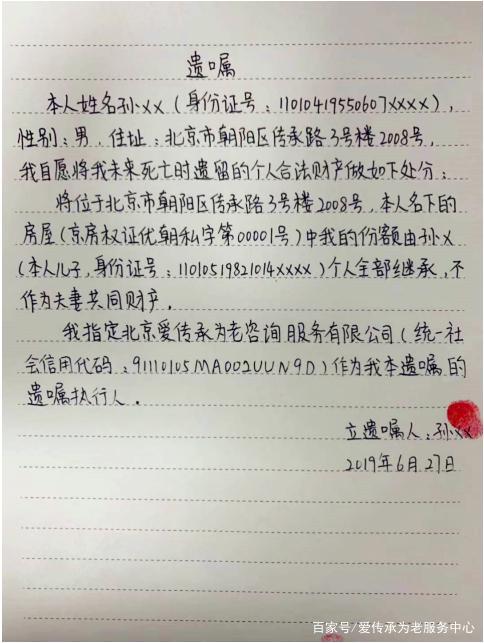 遗嘱
本人姓名孙XX(身份证号:11010419550607XXXX),
性别:男,住址:北京市朝阳区传承路3号楼2008号,
我自愿将我未来死亡时遗留的个人合法财产做如下处分:
将位于北京市朝阳区传承路3号楼2008号,本人名下的
房屋(京房权证优朝私字第00001号)中我的份额由孙X
(本人儿子,身份证号:11010519821014XXXX)个人全部继承,不
作为夫妻共同财产。
我指定北京爱传承为老咨询服务有限公司(统一社
会信用代码:91110105MA002UUN9D)作为我本遗嘱的
遗嘱执行人。
立遗嘱人:孙XX
2019年6月27日
百家号/爱传承为老服务中心